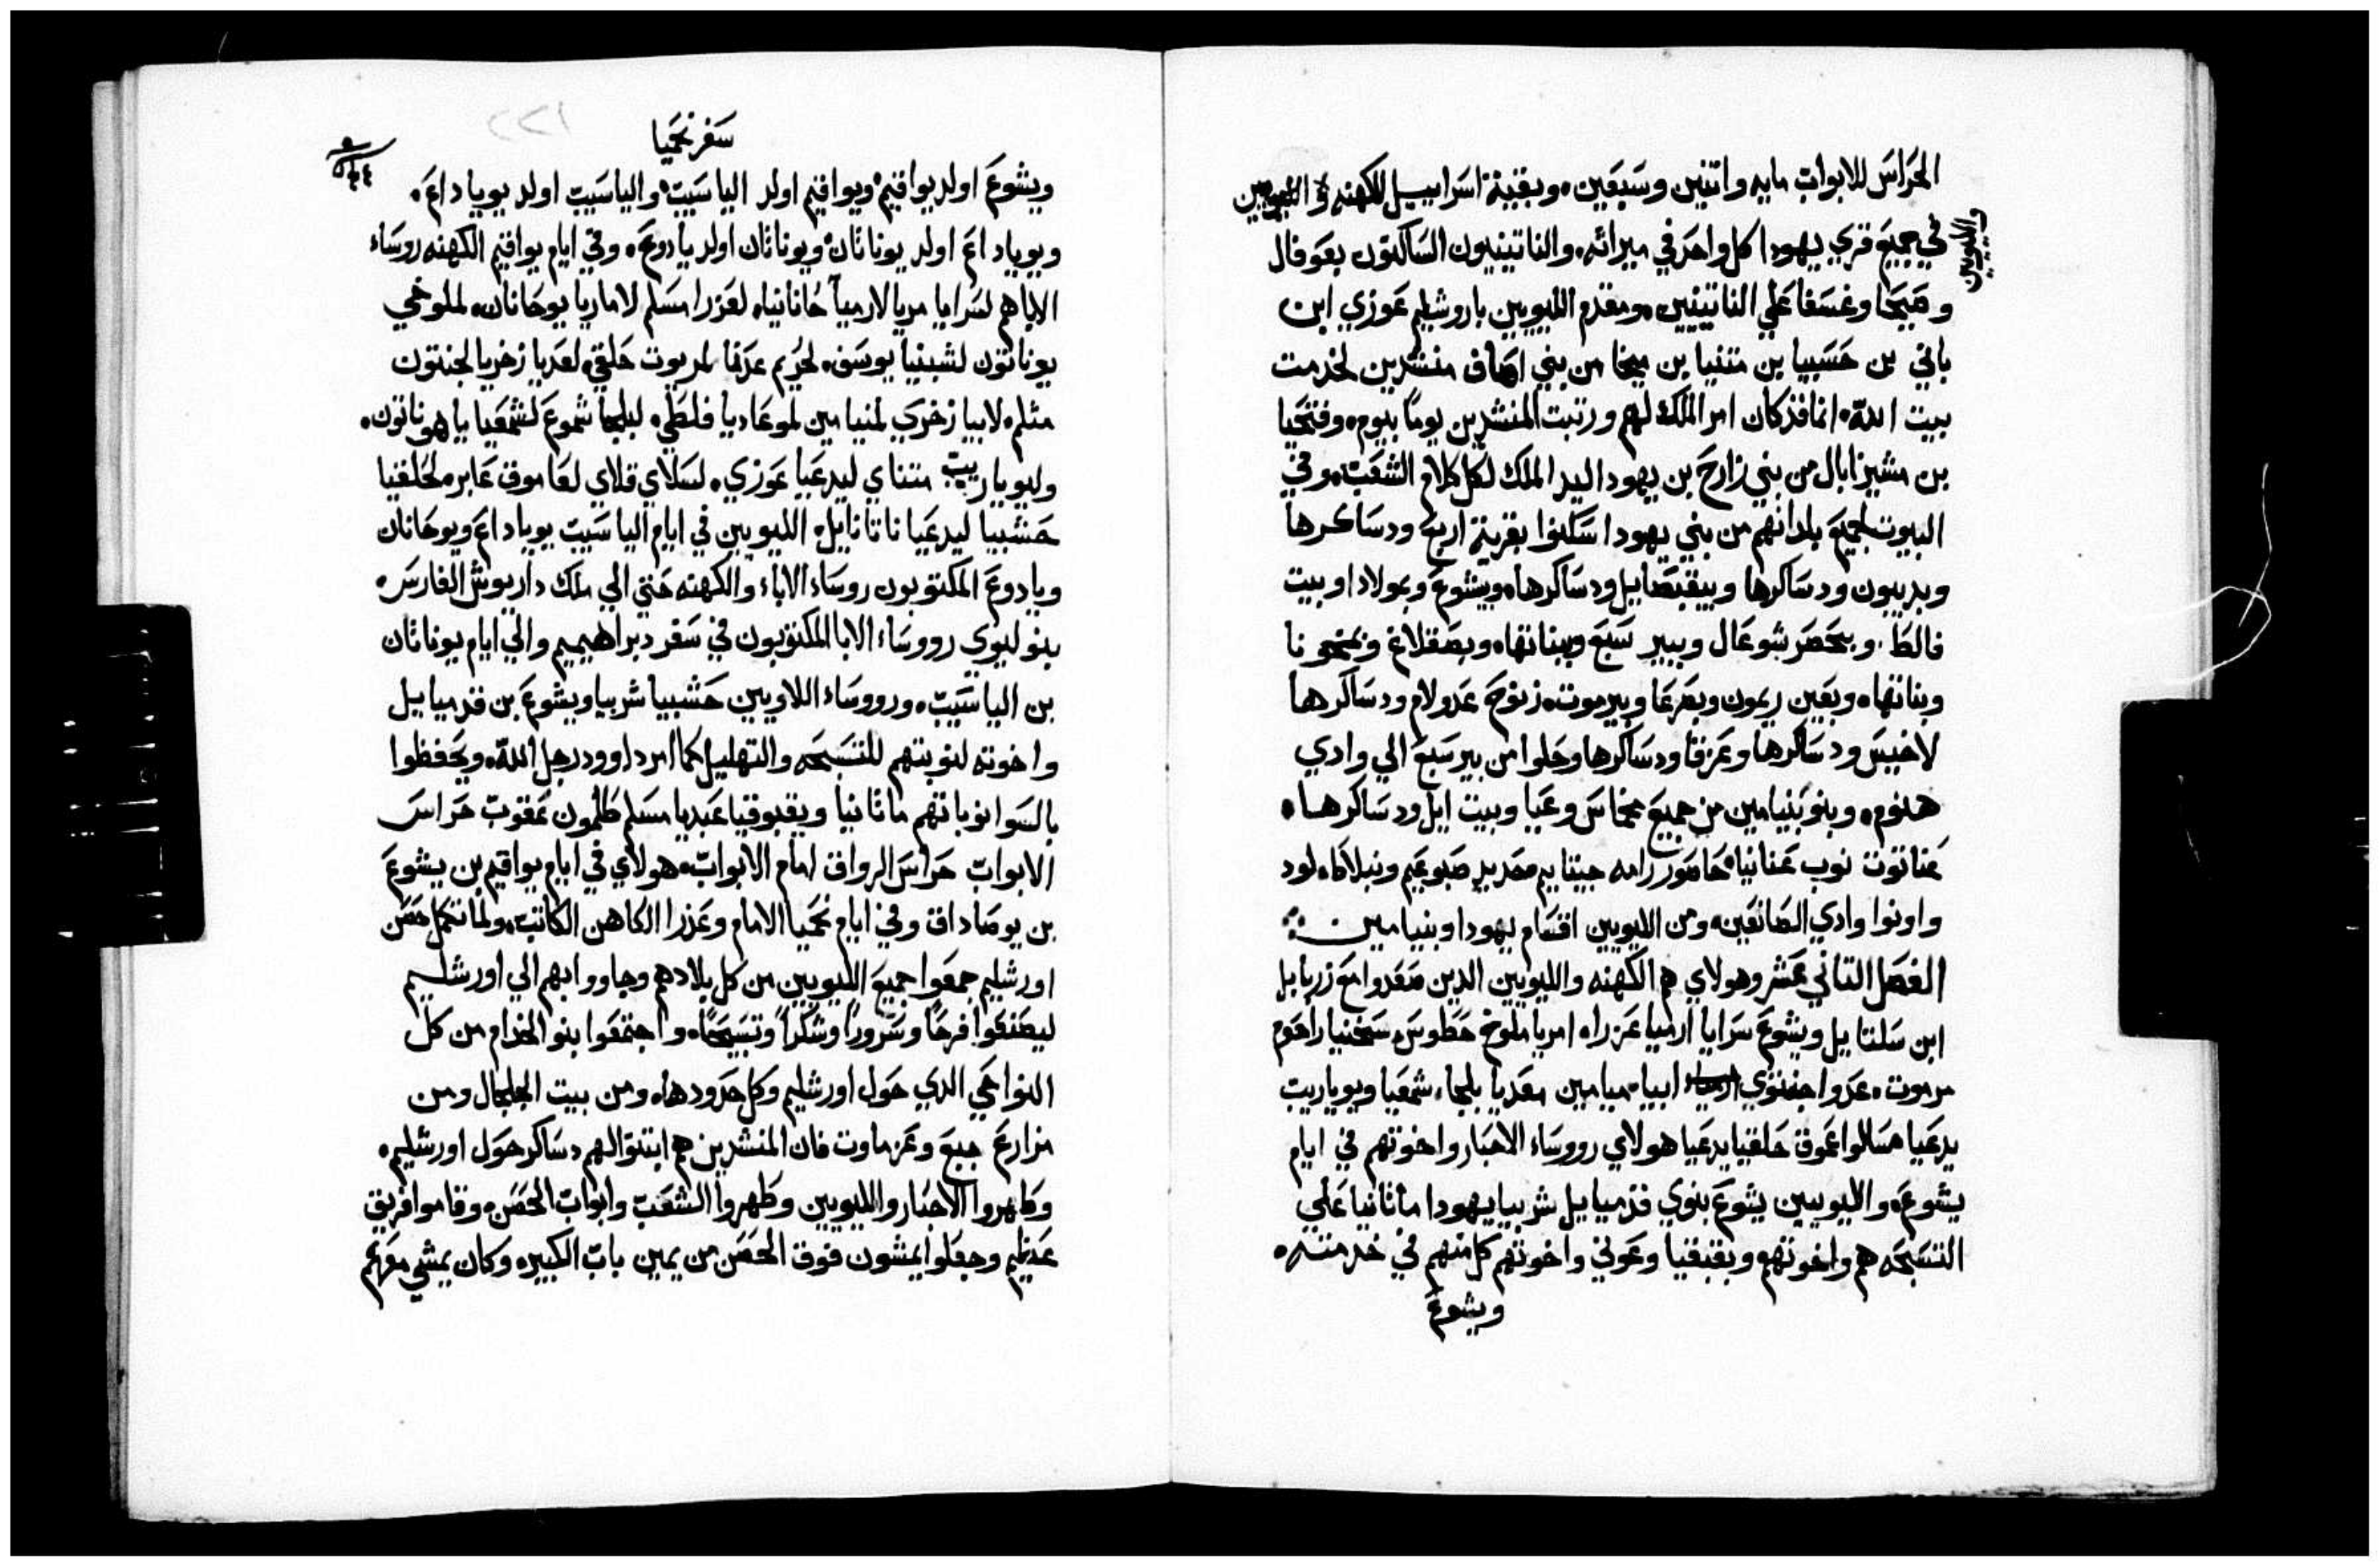 الحراس للابواب مايه واتنين وسبعين. وبقية اسراييل للكهنه
والليويين
في جميع قري يهودا كل واحد في ميراثه. والناتينيون الساكنون بعوفال
وصيحا وغسفا علي الناتينيين. ومقدم الليويين باروشليم عوزي ابن
باني بن حسبيا بن متنيا بن ميخا من بني اصاف منشدين لخدمت
بيت الله. انما فذ كان امر الملك لهم ورتبت المنشدين يوما بيوم. وفتحيا
بن مشيزابال من بني زارح بن يهودا اليد الملك لكل كلام الشعب. وفي
البيوت لجميع بلدانهم من بني يهودا سكنوا بقرية اربع ودساكرها
وبديبون ودساكرها وبيقبصاييل ودساكرها. وبيشوع وبمولادا وبيت
فالط. وبحصر شوعال وببير سبع وبناتها. وبصقلاغ وبمخونا
وبناتها. وبعين ريمون وبصرعا وبيرموت. زنوح عدولام ودساكرها
لاخيس ودساكرها وعزقا ودساكرها وحلوا من بير سبع الي وادي
هنوم. وبنو بنيامين من جميع مخماس وعيا وبيت ايل ودساكرها.
عناتوت نوب عنانيا. حاصور رامه جيتاييم حديد صبوعيم ونبلاط. لود
واونوا وادي الصانعين. ومن الليويين اقسام يهودا وبنيامين
الفصل التاني عشر وهولاي هم الكهنه والليويين الدين صعدوا مع زربابل
ابن سلتاييل ويشوع سرايا ارميا عزرا. امريا ملوخ حطوس. سخنيا راحوم
مرموت. عدوا جنتوي ابيا. ميامين معديا بلجا. شمعيا ويوياريت
يدعيا سالوا عموق حلقيا يدعيا هولاي روساء الاحبار واخوتهم في ايام
يشوع. والليويين يشوع بنوي قدمياييل شربيا يهودا ماتانيا علي
التسبحه هم واخوتهم وبقبقيا وعوني واخوتهم كل منهم في خدمته.
ويشوع
سفر نحميا
ويشوع اولد يواقيم. ويواقيم اولد الياسيب. والياسيب اولد يوياداع.
ويوياداع اولد يوناتان. ويوناتان اولد يادوع. وفي ايام يواقيم الكهنه روساء
الاباهم لسرايا مريا لارميا حانانيا. لعزرا مسلم لاماريا يوحانان. لملوخي
يوناتون لشبنيا يوسف. لحريم عدنا لمريوت حلقي. لعديا زخريا لجنتون
مثلم. لابيا زخري لمنيامين لموعاديا فلطي. لبلجا شموع لشمعيا ياهوناتون.
وليوياريب متناي ليدعيا عوزي. لسلاي قلاي لعاموق عابر. لحلقيا
حشبيا ليدعيا ناتانايل. الليويين في ايام الياسيب يوياداع ويوحانان
ويادوع المكتوبون روساء الاباء والكهنه حتي الي ملك داريوش الفارس.
بنو ليوي رووساء الابا المكتوبون في سفر دبراهيميم والي ايام يوناتان
بن الياسيب. ورووساء اللاويين حشبيا شربيا ويشوع بن قدمياييل
واخوته لنوبتهم للتسبحه والتهليل كما امر داوود رجل الله. ويحفظوا
بالسوا نوباتهم ماتانيا ويقبوقيا عبديا مسلم طلمون عقوب حراس
الابواب حراس الرواق امام الابواب. هولاي في ايام يواقيم بن يشوع
بن يوصاداق وفي ايام نحميا الامام وعزرا الكاهن الكاتب. ولما تكمل حصن
اورشليم جمعوا جميع الليويين من كل بلادهم وجاووا بهم الي اورشليم
ليصنعوا فرحا وسرورا وشكرا وتسبيحا. واجتمعوا بنو الخدام من كل
النواحي الدي حول اورشليم وكل حدودها. ومن بيت الجلجال ومن
مزارع جبع وعزماوت فان المنشدين هم ابتنوا لهم دساكر حول اورشليم.
وطهروا الاحبار والليويين وطهروا الشعب وابواب الحصن. وقاموا فريق
عظيم وجعلوا يمشون فوق الحصن من يمين باب الكبير. وكان يمشي معهم